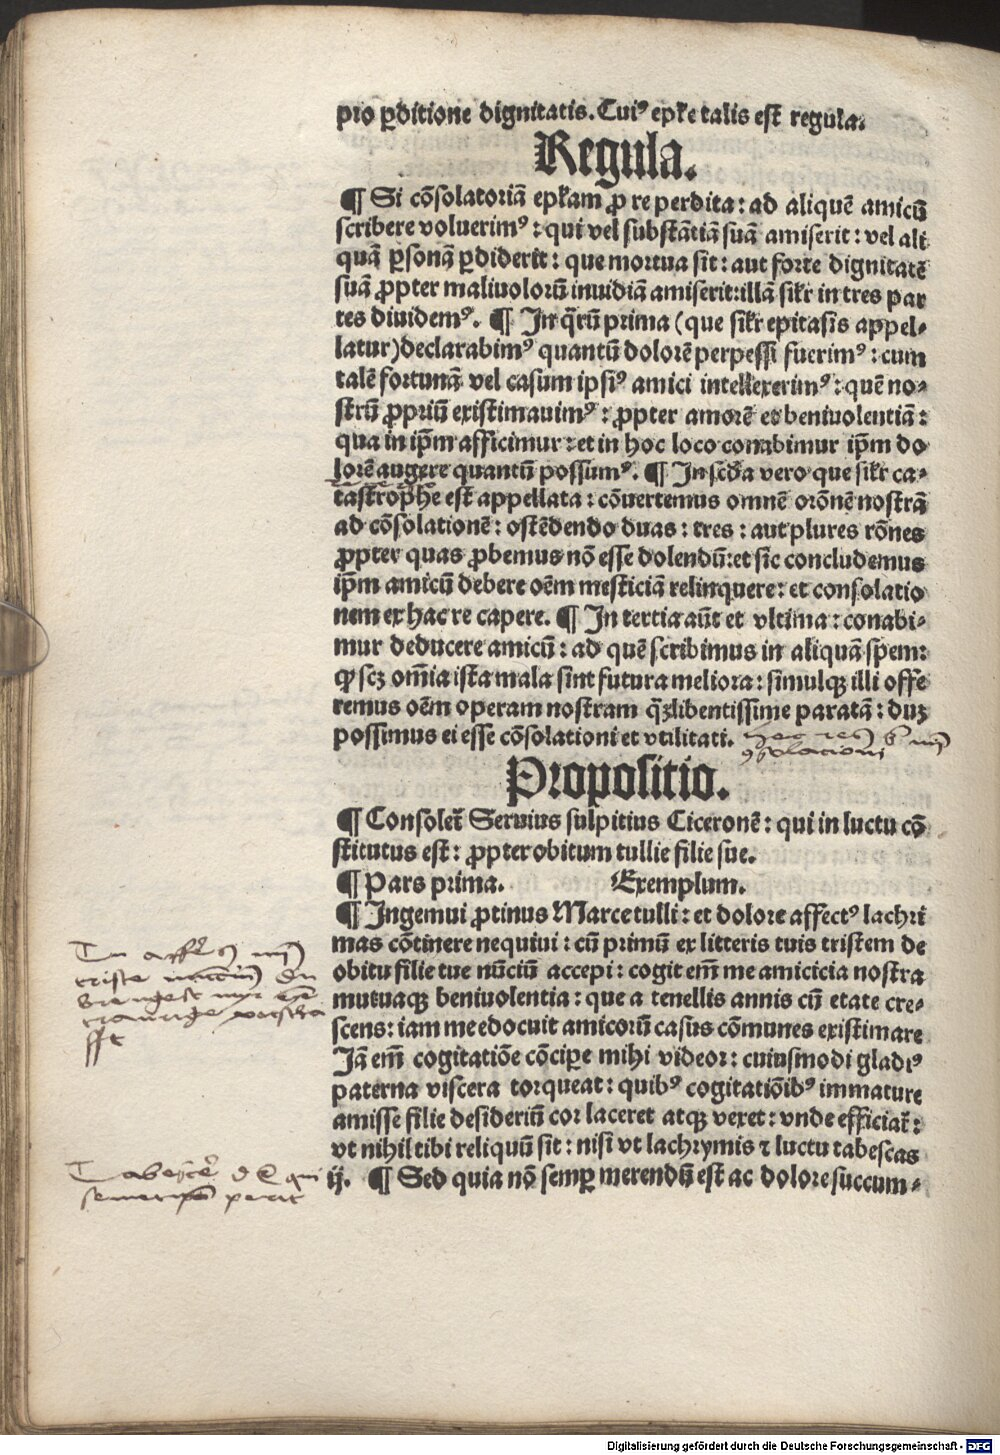 pro ꝑditione dignitatis. Cuiꝰ epľe talis est regula.
Regula.
¶ Si cõsolatoriã epľam ꝓ re perdita: ad aliquẽ amicũ
scribere voluerimꝰ: qui vel substãtiã suã amiserit: vel ali
quã ꝑsonã ꝑdiderit: que mortua sit: aut forte dignitatẽ
suã ꝓpter maliuolorũ inuidiã amiserit: illã silr in tres par
tes diuidemꝰ. ¶ In q̃rũ prima (que silr epitasis appel⸗
latur) declarabimꝰ quantũ dolorẽ perpessi fuerimꝰ: cum
talẽ fortunã vel casum ipsiꝰ amici intellexerimꝰ: quẽ no⸗
strũ ꝓpriũ existimauimꝰ: ꝓpter amorẽ et beniuolentiã:
qua in ip̃m afficimur: et in hoc loco conabimur ip̃m do
lorẽ augere quantũ possumꝰ. ¶ In scďa vero que silr ca⸗
tastrophe est appellata: cõuertemus omnẽ orõnẽ nostrã
ad cõsolationẽ: ostẽdendo duas: tres: aut plures rõnes
ꝓpter quas ꝓbemus nõ esse dolendũ: et sic concludemus
ip̃m amicũ debere oẽm mesticiã relinquere: et consolatio
nem ex hac re capere. ¶ In tertia aũt et vltima: conabi⸗
mur deducere amicũ: ad quẽ scribimus in aliquã spem:
ꝙ scꝫ om̃ia ista mala sint futura meliora: simulqꝫ illi offe
remus oẽm operam nostram q̃ꝫlibentissime paratã: duꝫ
possimus ei esse cõsolationi et vtilitati.
Propositio.
¶ Consoleť Seruius sulpitius Ciceronẽ: qui in luctu cõ
stitutus est: ꝓpter obitum tullie filie sue.
¶ Pars prima. Exemplum.
¶ Ingemui ꝓtinus Marce tulli: et dolore affectꝰ lachri
mas cõtinere nequiui: cũ primũ ex litteris tuis tristem de
obitu filie tue nũciũ accepi: cogit em̃ me amicicia nostra
mutuaqꝫ beniuolentia: que a tenellis annis cũ etate cre⸗
scens: iam me edocuit amicorũ casus cõmunes existimare
Jã em̃ cogitatiõe cõciꝑe mihi videor: cuiusmodi gladiꝰ
paterna viscera torqueat: quibꝰ cogitatiõibꝰ immature
amisse filie desideriũ cor laceret atqꝫ vexet: vnde efficiať:
vt nihil tibi reliquũ sit: nisi vt lachrymis ⁊ luctu tabescas
ij. ¶ Sed quia nõ semꝑ merendũ est ac dolore succum⸗
Digitalisierung gefördert durch die Deutsche Forschungsgemeinschaft - DFG